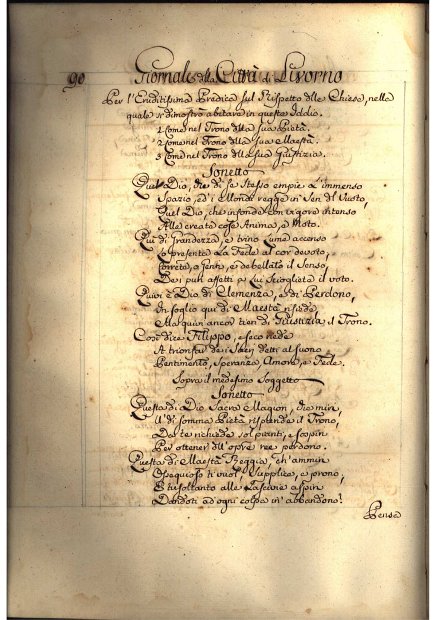 90 Giornale della Città di Livorno
Per l'Eruditissima Predica sul Rispetto delle Chiese, nella
quale si dimostrò abitare in queste Iddio.
1 Come nel Trono della sua Pietà.
2 Come nel Trono della sua Maestà.
3 Come nel Trono della sua Giustizia.
Sonetto
Quel Dio, che di se stesso empie l'immenso
Spazio, ed i Mondi regge in sen di Vuoto,
Quel Dio, che infonde con vigore intenso
Alle create cose Anima, e Moto.
Qui di grandezza, e trino Lume accenso
Lo presenta la Fede al cor devoto,
Corretto, a sente, e debellato il Senso,
De i puri affetti a Lui scioglieta il voto.
Quivi è Dio di Clemenza, e di Perdono,
In soglio qui di Maestà risiede,
Ma qui ancor tien di Giustizia il Trono.
Così dice Filippo, e seco riede
A trionfar de i detti al suono
Pentimento, Speranza, Amore, e Fede.
Sopra il medesimo Soggetto
Sonetto
Questa di Dio Sacra Magion, che miri,
U' di somma Pietà risplende il Trono,
Da te richiede sol pianti, e sospiri
Per ottener dell'opre ree perdono.
Questa di Maestà Reggia, ch'ammiri
Ossequioso ti vuol, supplice, e prono,
E tu soltanto alle Lascivie aspiri
Dandoti ad ogni colpa in abbandono!
Pensa